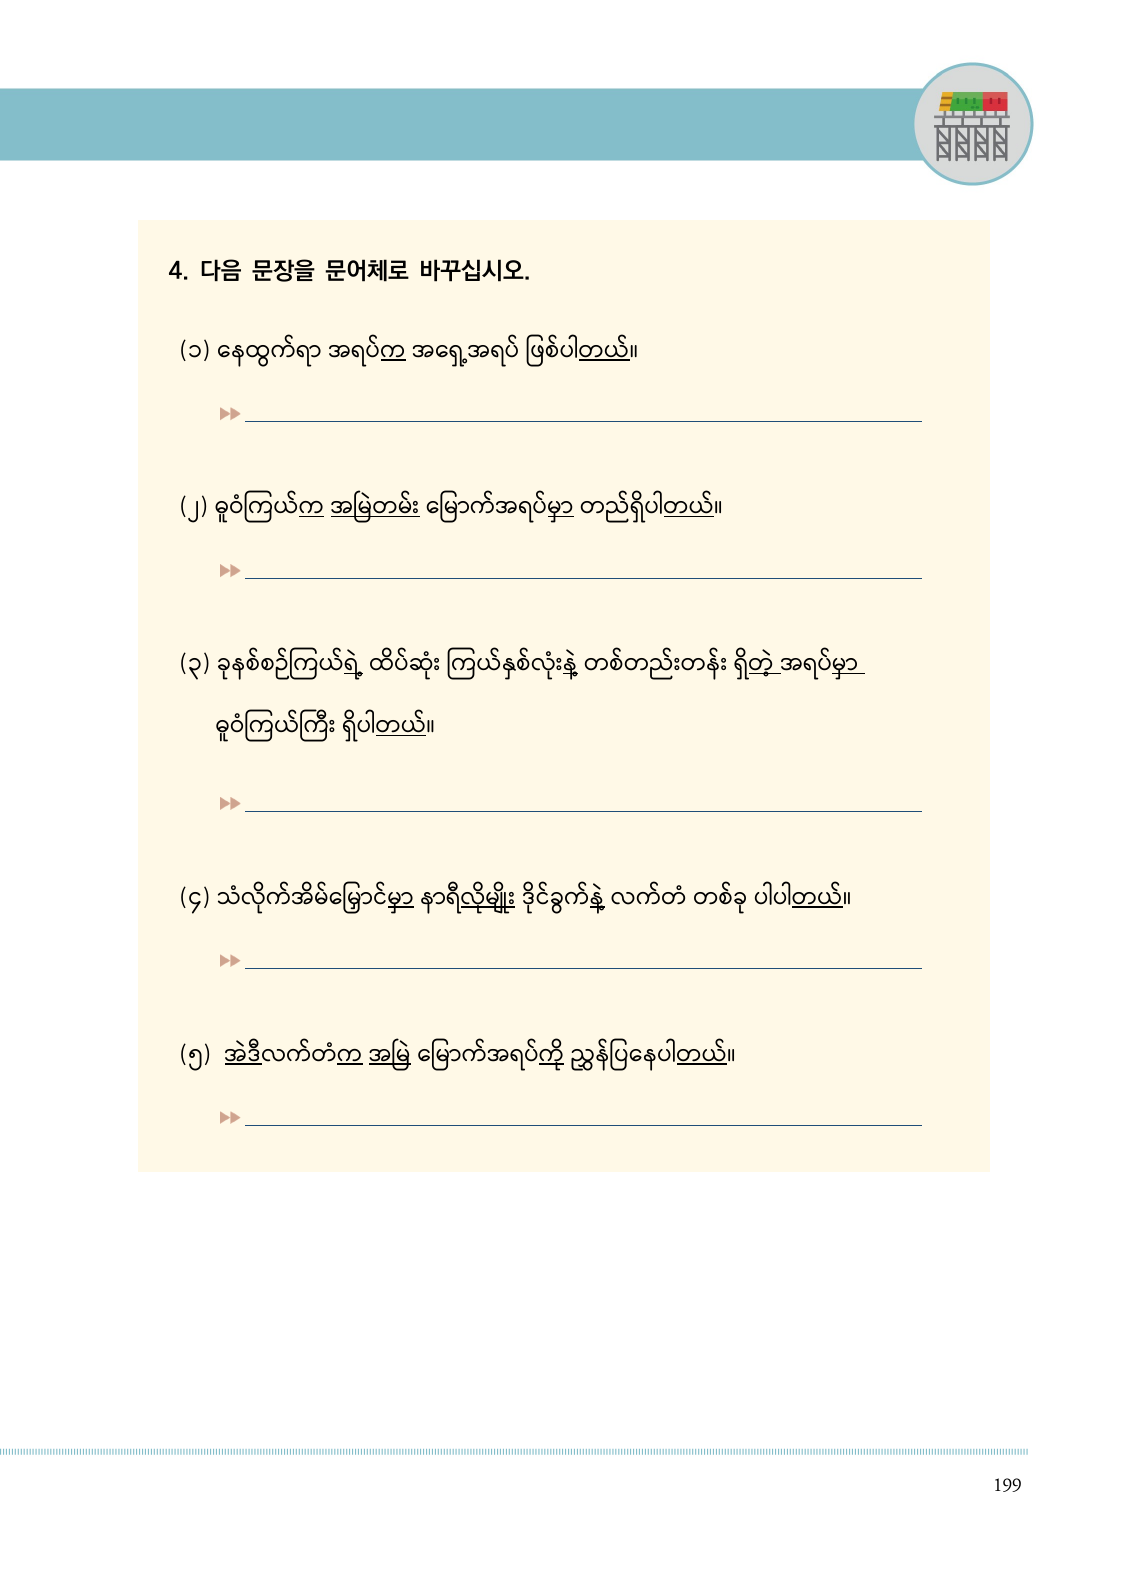 4. 다음 문장을 문어체로 바꾸십시오.
(၁) နေထွက်ရာ အရပ်က အရှေ့အရပ် ဖြစ်ပါတယ်။
(၂) ဓူဝံကြယ်က အမြဲတမ်း မြောက်အရပ်မှာ တည်ရှိပါတယ်။
(၃) ခုနစ်စဉ်ကြယ်ရဲ့ ထိပ်ဆုံး ကြယ်နှစ်လုံးနဲ့ တစ်တည်းတန်း ရှိတဲ့ အရပ်မှာ
ဓူဝံကြယ်ကြီး ရှိပါတယ်။
(၄) သံလိုက်အိမ်မြှောင်မှာ နာရီလိုမျိုး ဒိုင်ခွက်နဲ့ လက်တံ တစ်ခု ပါပါတယ်။
(၅) အဲဒီလက်တံက အမြဲ မြောက်အရပ်ကို ညွှန်ပြနေပါတယ်။
199